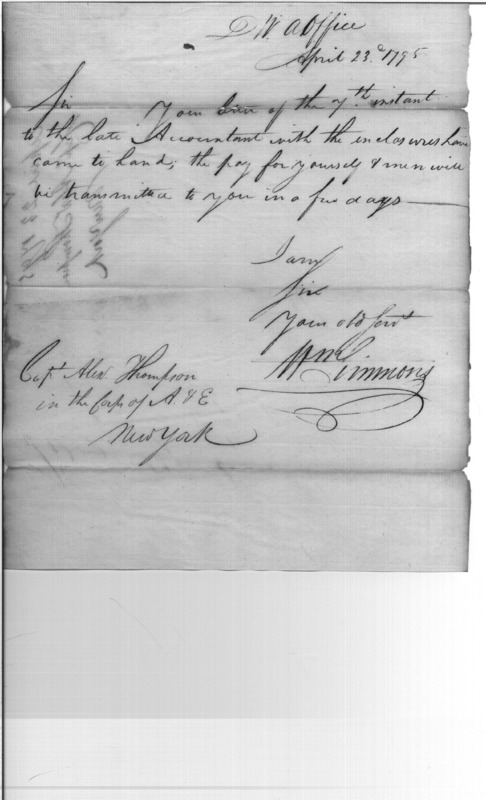 D W. A Office
April 23.d 1795
Sir
Your of the 7th instant
to the late Accountant with the inclosures have
come to hand; the pay for yourself & men will
be transmitted to you in a few days
I am
Sir
Your obd Servt
Wm Simmons
Capt Alexr Thompson
in the Corps of A & E
New York